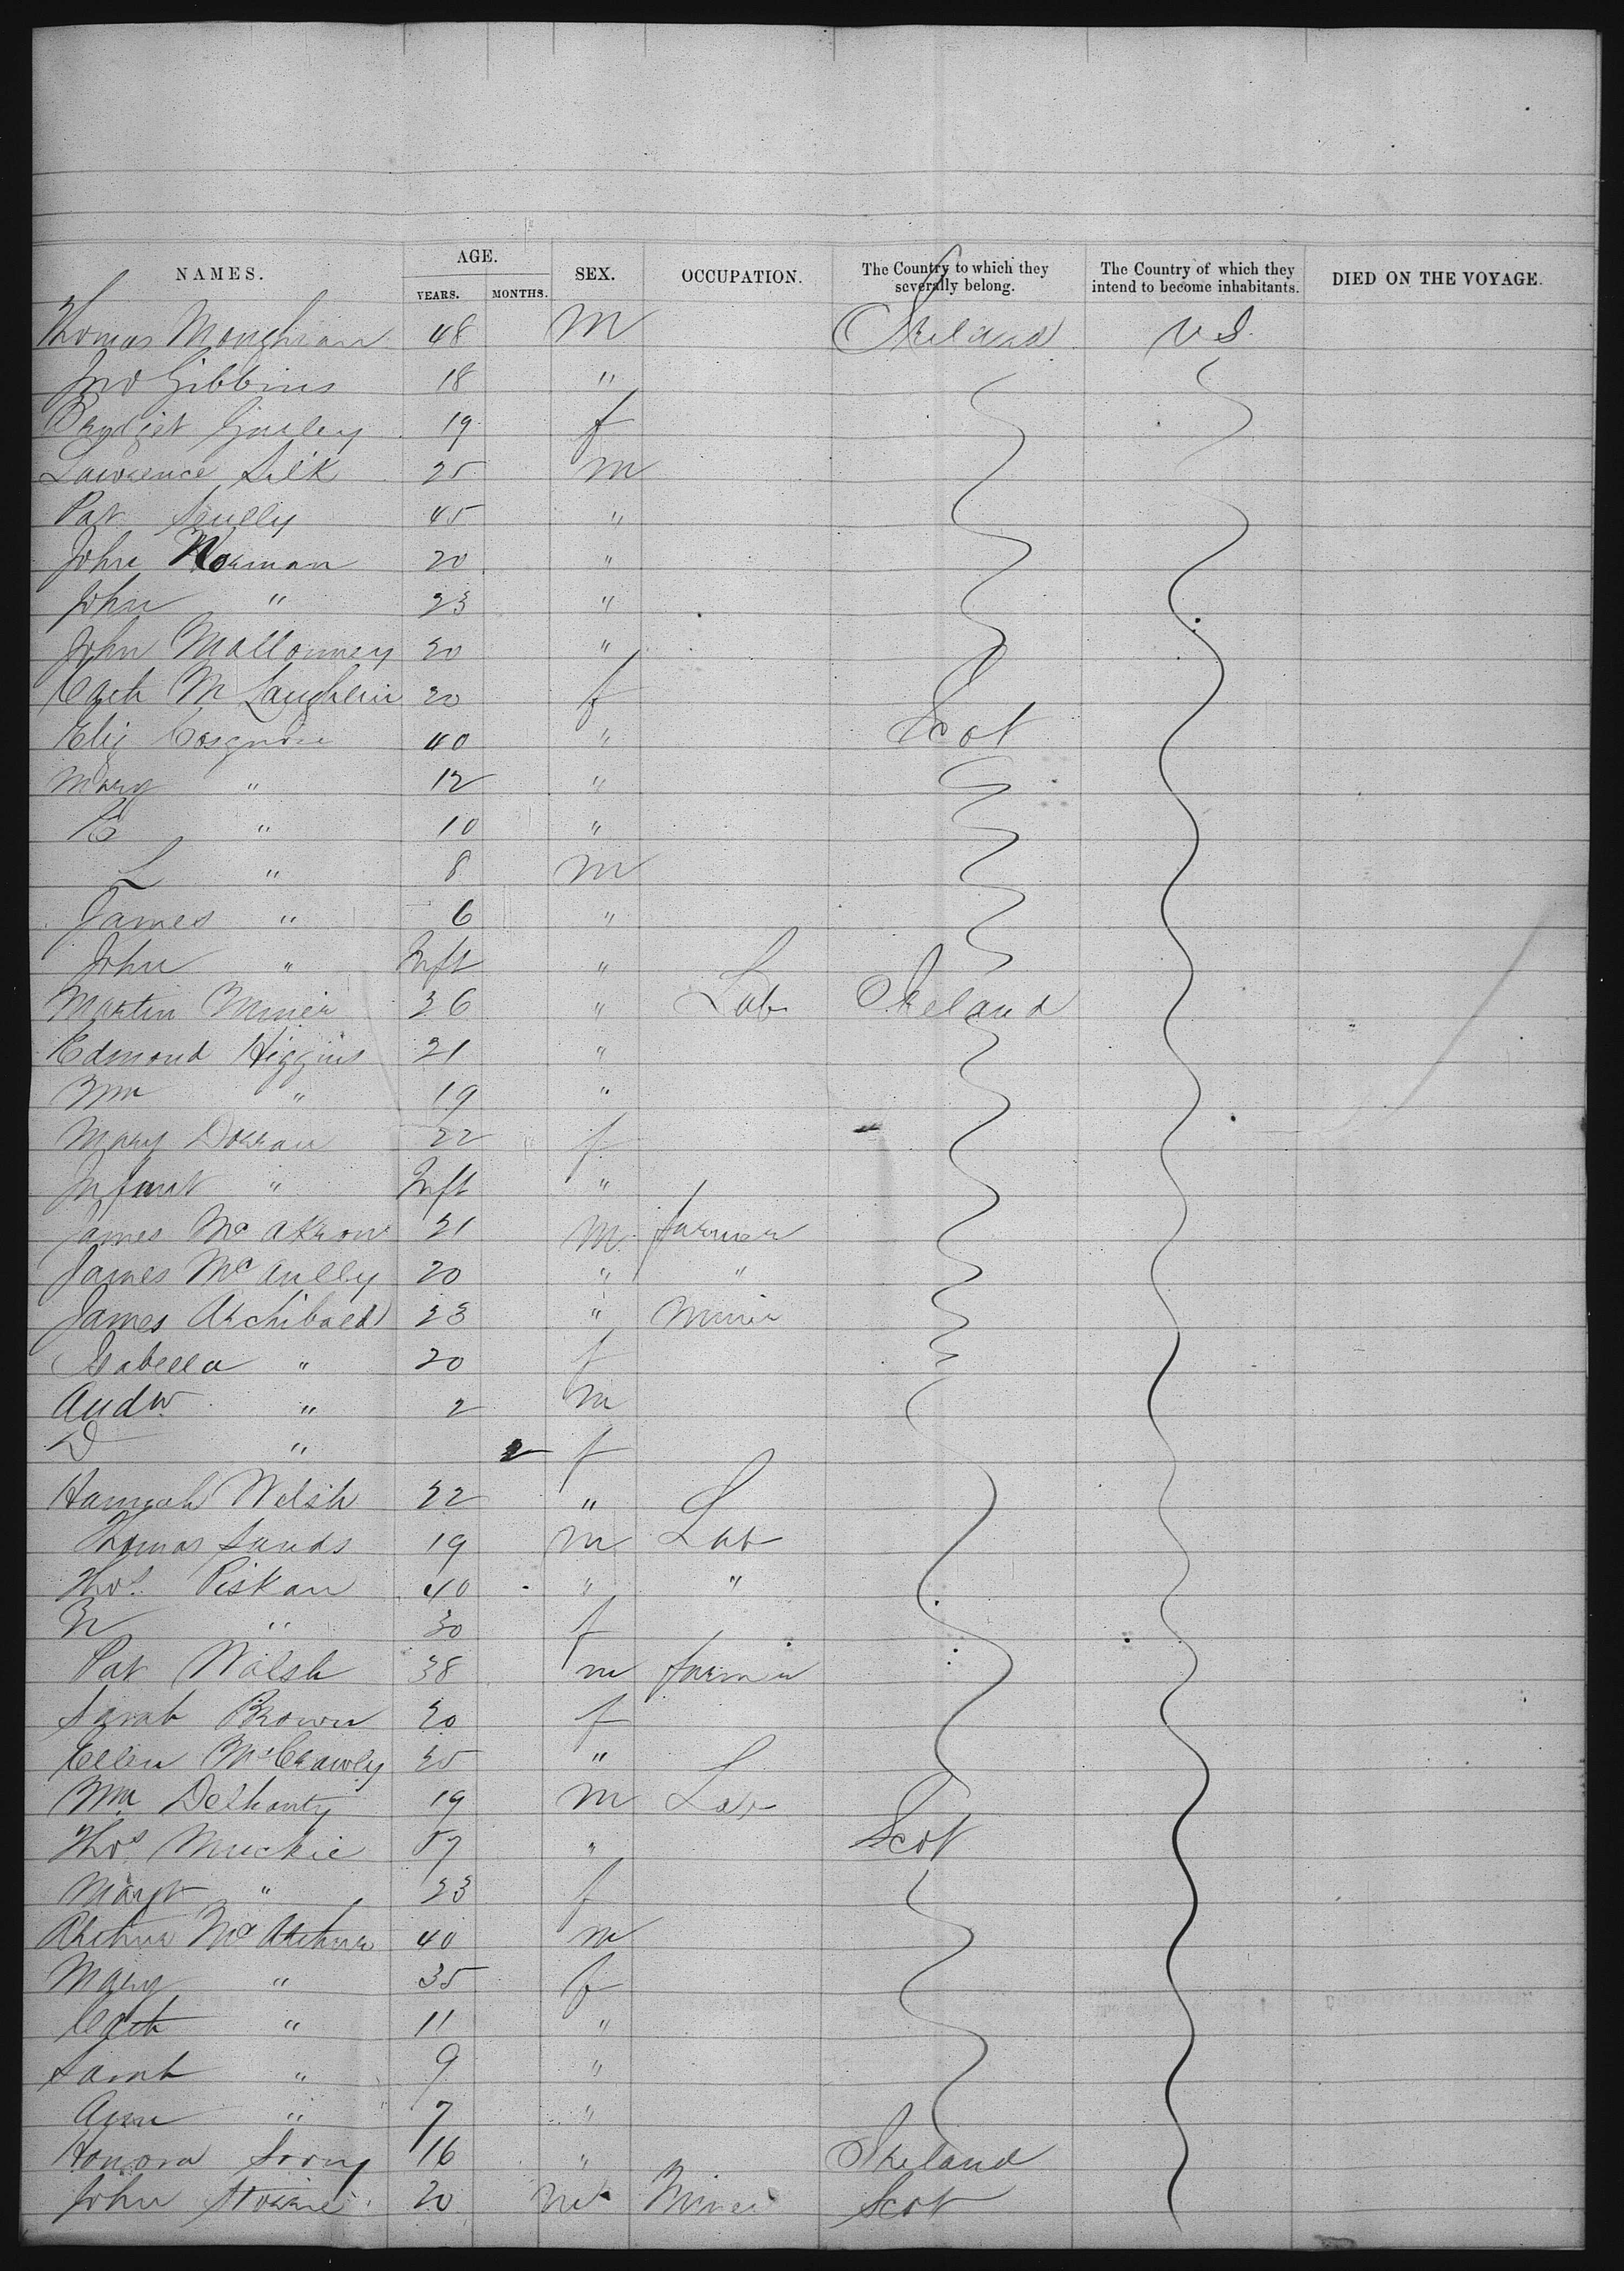 NAMES. AGE. YEARS. MONTHS. SEX. OCCUPATION. The Country to which they severally belong. The Country of which they intend to become inhabitants. DIED ON THE VOYAGE.
Thomas Monghran 48 M Ireland U S.
Jno Gibbins 18 "
Bridget 19 f
Lawrence Silk 25 m
Pat Scully 45 "
John Norman 20 "
John " 23 "
John Mallonney 20 "
Cath McLaughlin 20 f
Eliz Cosgrove 40 " Scot
Mary " 12 "
C " 10 "
L " 8 m
James " 6 "
John " Inft "
Martin 36 " Lab Ireland
Edmond Higgins 21 "
Wm " 19 "
Mary Dorran 22 f
Infant " Inft "
James 21 m farmer
James McAnlly 20 " "
James Archibald 23 " Miner
Isabella " 20 f
Andw " 2 m
D " 2 f
Hannah Welsh 22 "
Thomas Sands 19 m Lab
Thos. Piskan 40 " "
" 30 f
Pat Walsh 38 m farmer
Sarah Brown 20 f
Ellen McCrawly 25 "
Wm Delhanty 19 m Lab
Thos Muckie 57 " Scot
Margt " 23 f
Arthur McArthur 40 m
Mary " 35 f
Cath " 11 "
Sarah " 9 "
" 7 "
Honora 16 " Ireland
John 20 m Miner Scot